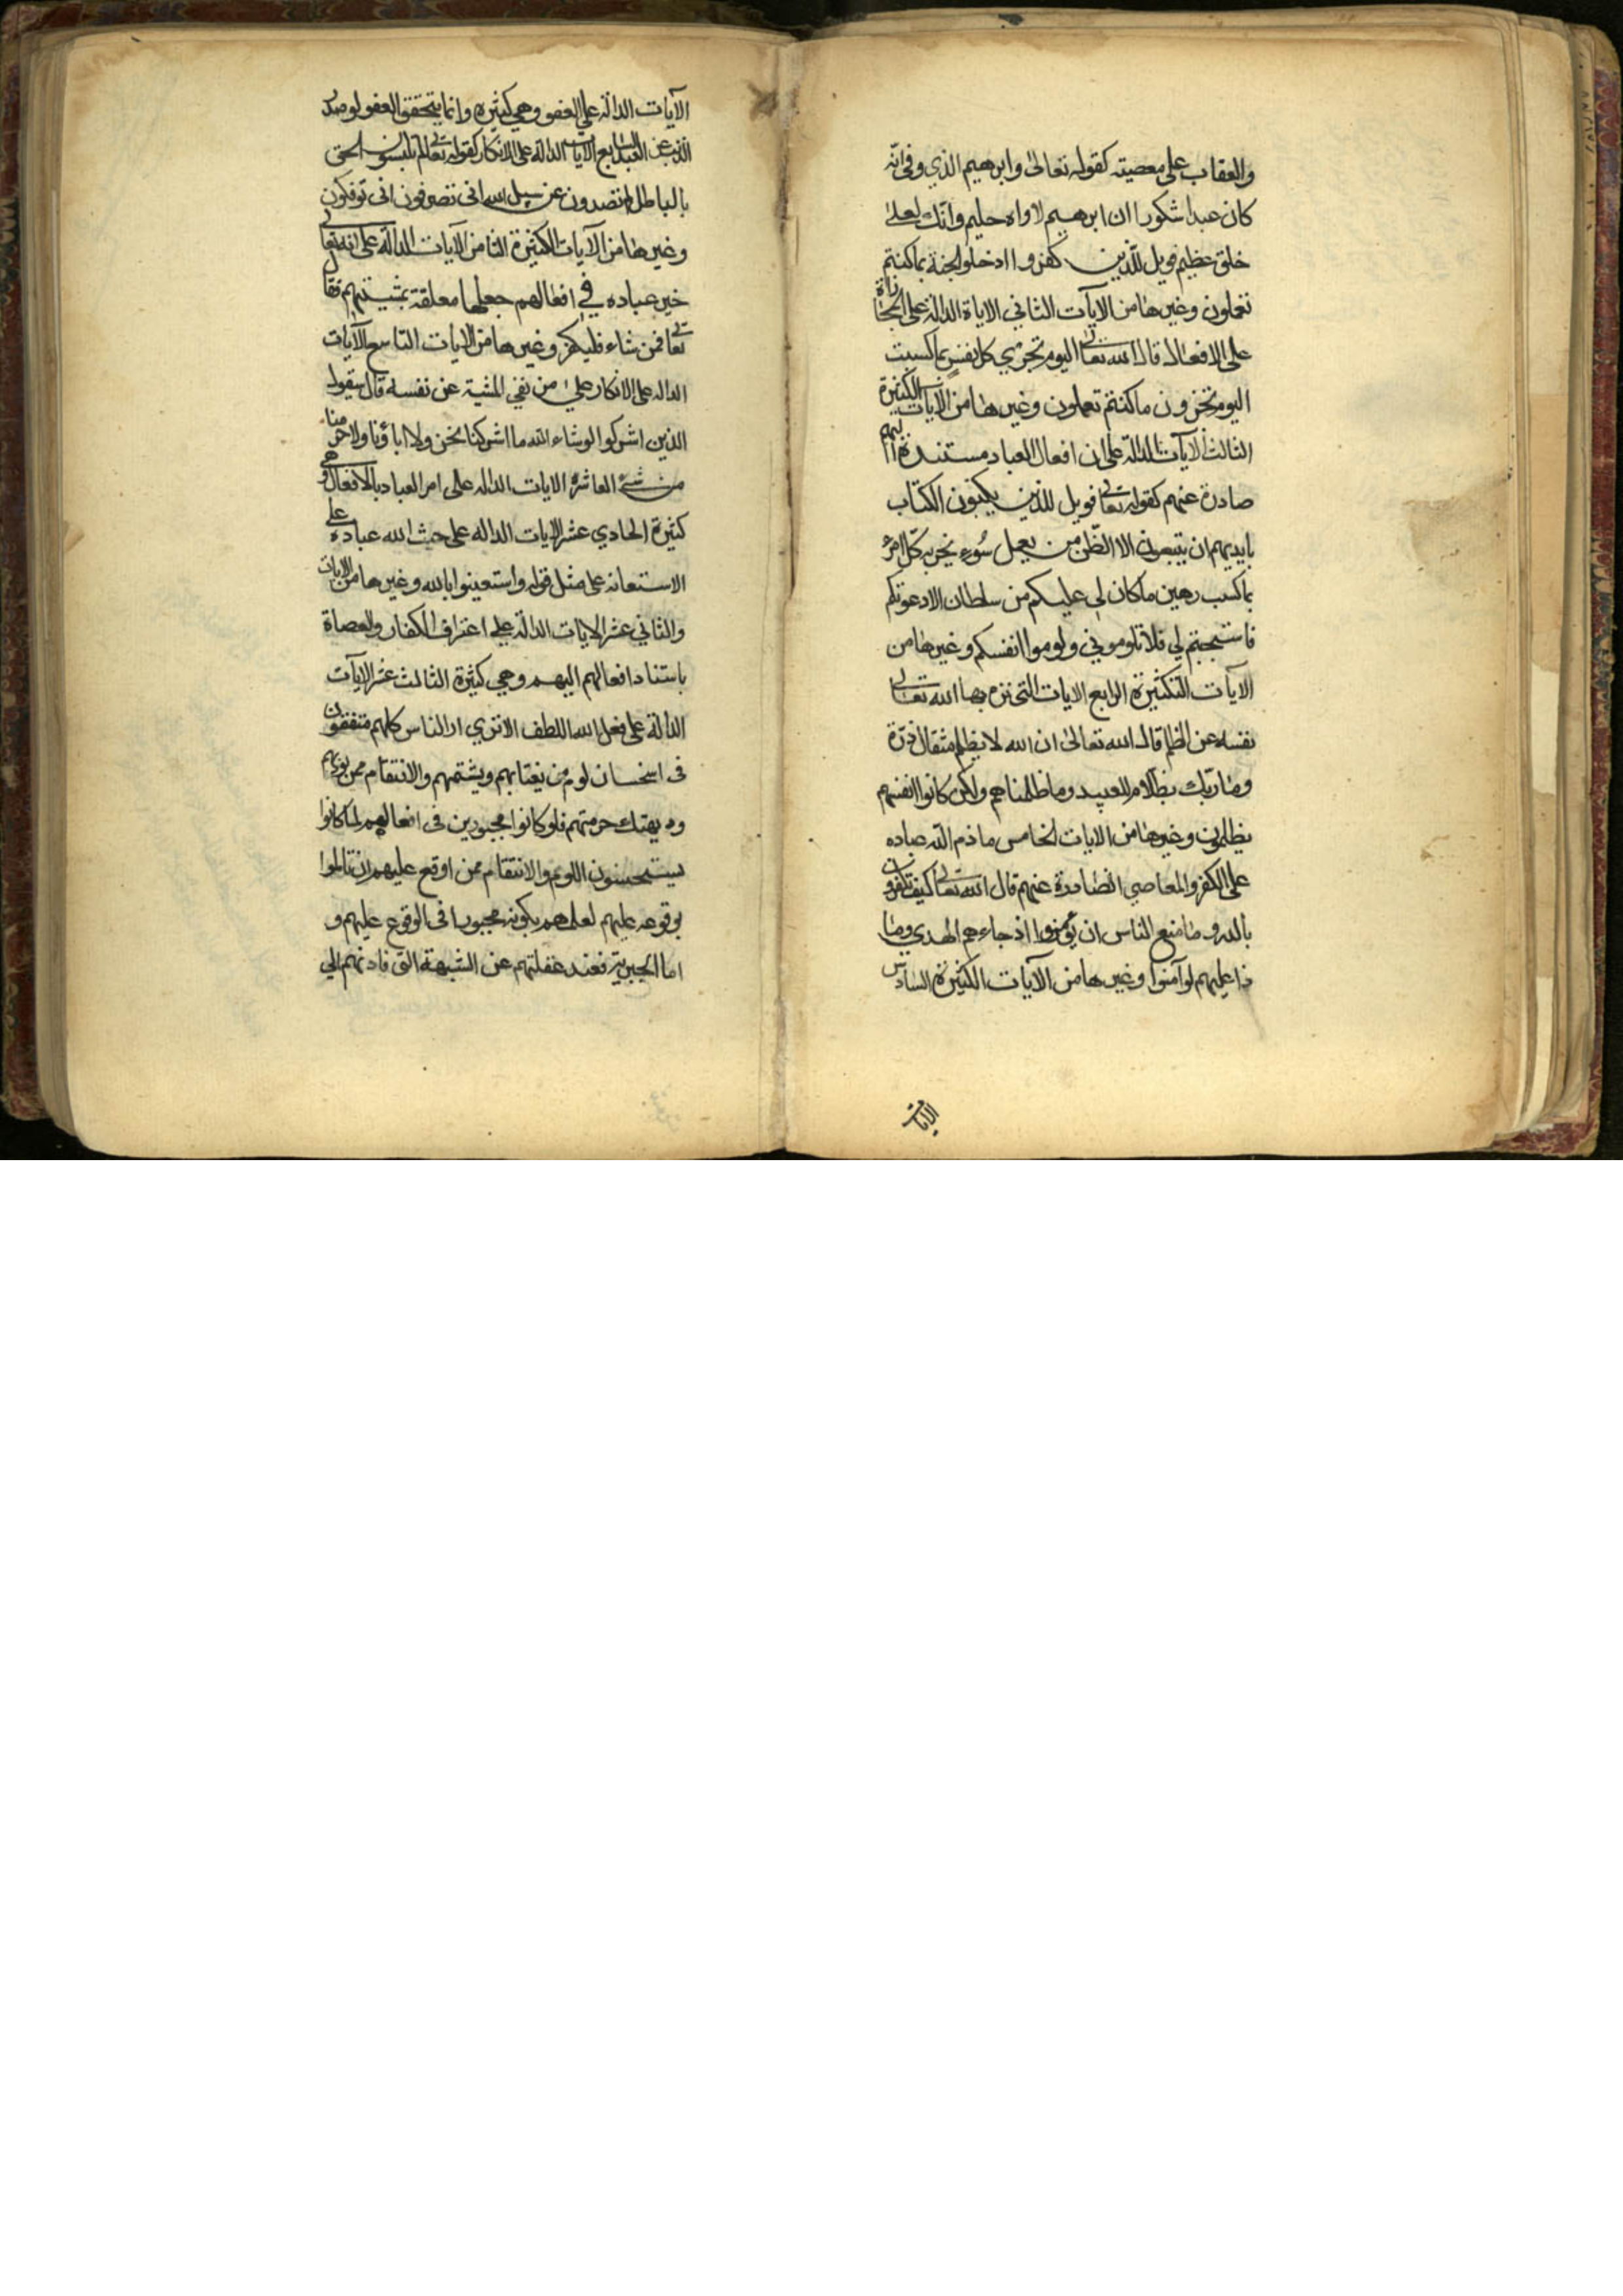 والعقاب على معصيته كقوله تعالى وابرهيم الذي وفى انه
كان عبدا شكورا ان ابرهيم لاواه حليم وانك لعلى
خلق عظيم فويل للذين كفروا ادخلوا الجنة بما كنتم
تعملون وغيرها من الآيات الثاني الاياة الدالة على المجازاة
على الافعال قال الله تعالى اليوم تجزي كل نفس بما كسبت
اليوم تجزون ما كنتم تعملون وغيرها من الآيات الكثيرة
الثالث الآيات الدالة على ان افعال العباد مستندة اليهم
صادرة عنهم كقوله تعالى فويل للذين يكتبون الكتاب
بايديهم ان يتبعون الا الظن من يعمل سُوء يجز به كل امرء
بما كسب رهين ما كان لي عليكم من سلطان الا دعوتكم
فاستجبتم لي فلا تلوموني ولوموا انفسكم وغيرها من
الآيات الكثيرة الرابع الايات التي نزه بها الله تعالى
نفسه عن الظلم قال الله تعالى ان الله لا يظلم مثقال ذرة
وما ربك بظلام للعبيد وما ظلمناهم ولكن كانوا انفسهم
يظلمون وغيرها من الايات الخامس ما ذم الله عباده
على الكفر والمعاصي الصادرة عنهم قال الله تعالى كيف تكفرون
بالله وما منع الناس ان يؤمنوا اذ جاءهم الهدي وما
ذا عليهم لو آمنوا وغيرها من الآيات الكثيرة السادس
الايات
الآيات الدالة على العفو وهي كثيرة وانما يتحقق العفو لو صدر
الذنب عن العبد السابع الايات الدالة على الانكار كقوله تعالى لم تلبسون الحق
بالباطل لم تصدون عن سبيل الله انى تصرفون انى توفكون
وغيرها من الآيات الكثيرة الثامن الآيات الدالة على انه تعالى
خير عباده في افعالهم جعلها معلقة بمشيتهم فقال
تعالى فمن شاء فليكفر وغيرها من الآيات التاسع الآيات
الداله على الانكار على من نفي المشية عن نفسه قال سيقول
الذين اشركوا لو شاء الله ما اشركنا نحن ولا اباؤنا ولا حرمنا
من شئ العاشرة الايات الداله على امر العباد بالافعال وهي
كثيرة الحادي عشر الايات الداله على حث الله عباده على
الاستعانه على مثل قوله واستعينوا بالله وغيرها من الايات
والثاني عشر الايات الدالة على اعتراف الكفار والعصاة
باستناد افعالهم اليهم وهي كثيرة الثالث عشر الآيات
الدالة على فعل الله اللطف الا تري ان الناس كلهم متفقون
فى استحسان لوم من يغتابهم ويشتمهم والانتقام ممن يوذيهم
و يهتك حرمتهم فلو كانوا مجبورين فى افعالهم لما كانوا
يستحسنون اللوم والانتقام ممن اوقع عليهم ان تالموا
بوقوعه عليهم لعلمهم بكونه مجبورا فى الوقوع عليهم و
اما الجبرية فعند غفلتهم عن الشبهة التى قادتهم الي